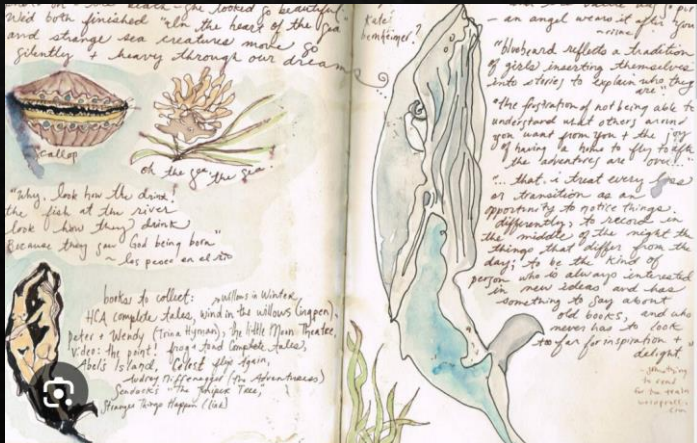 beach - she looked so beautiful.
We'd both finished "in the heart of the sea"
and strange sea creatures move so
silently + heavy through our dreams
scallop
oh the sea, the sea.
"Why, look how they drink!
the fish at the river
look how they drink
Because they saw God being born"
~ los peces en el río
books to collect: in Winter,
HCA complete tales, wind in the willows
Peter + Wendy (Trina Hyman), the little Moon Theatre,
video: the point! frog + toad Complete tales,
Abel's Island, Celeste again,
Audrey Niffenegger (The Adventuress)
Sendak's "the Juniper Tree,
Strange Things Happen (Link)
Kate
bernheimer?
- an angel wears it after you
"bluebeard reflects a tradition
of girls inserting themselves
into stories to explain who they
are"
"the frustration of not being able to
understand what others around
you want from you + the joy
of having a home to fly to after
the adventures are over..."
"... that i treat every loss
or transition as an
opportunity to notice things
differently, to record in
the middle of the night the
things that differ from the
day; to be the kind of
person who is always interested
in new ideas and has
something to say about
old books, and who
never has to look
too far for inspiration +
delight.
- something
to read
for the train